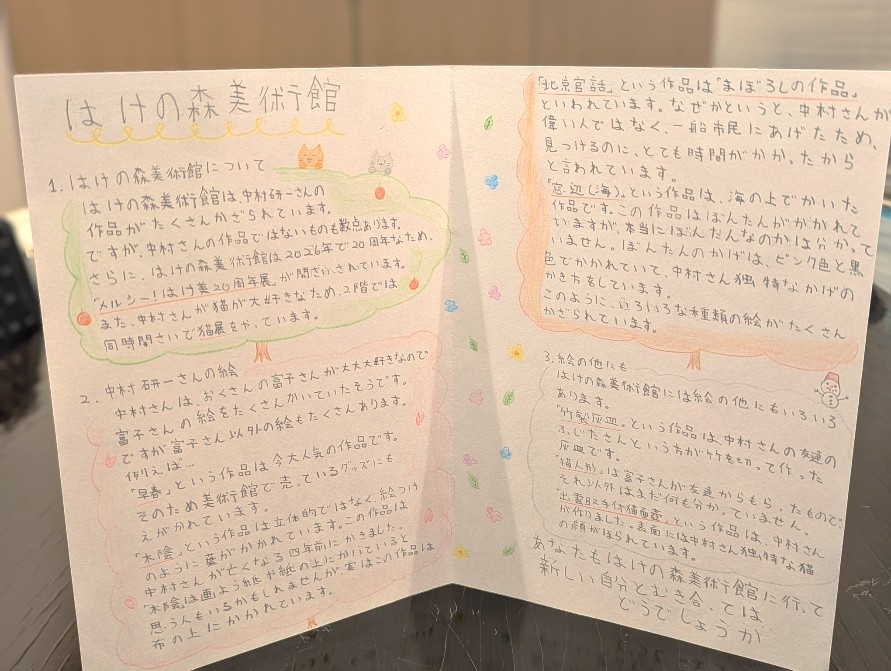 はけの森美術館
1. はけの森美術館について
はけの森美術館は、中村研一さんの
作品がたくさんかざられています。
ですが、中村さんの作品ではないものも数点あります。
さらに、はけの森美術館は2026年で20周年なため、
「メルシー!はけ美20周年展」が開さいされています。
また、中村さんが猫が大好きなため、2階では
同時開さいで猫展をやっています。
2. 中村研一さんの絵
中村さんは、おくさんの富子さんが大大大好きなので
富子さんの絵をたくさんかいていたそうです。
ですが富子さん以外の絵もたくさんあります。
例えば…
「早春」という作品は今大人気の作品です。
そのため美術館で売っているグッズにも
えがかれています。
「木陰」という作品は立体的ではなく、絵つけ
のように葉がかかれています。この作品は
中村さんが亡くなる四年前にかきました。
「木陰」は画よう紙や紙の上にかいていると
思う人もいるかもしれませんが、実はこの作品は
布の上にかかれています。
「北京官話」という作品は「まぼろしの作品」
といわれています。なぜかというと、中村さんが
偉い人ではなく、一船市民にあげたため、
見つけるのに、とても時間がかかったから
と言われています。
「窓辺(海)」という作品は、海の上でかいた
作品です。この作品はぼたんがかかれて
いますが、本当にぼたんなのかは分かって
いません。ぼたんのかげは、ピンク色と黒
色でかかれていて、中村さん独特なかげの
かき方をしています。
このように、いろいろな種類の絵がたくさん
かざられています。
3. 絵の他にも
はけの森美術館には絵の他にもいろいろ
あります。
「竹製灰皿」という作品は、中村さんの友達の
ふじたさんという方が竹を切って作った
灰皿です。
「猫人形」は富子さんが友達からもらったもので、
それ以外はまだ何も分かっていません。
「出雲取手付猫面壺」という作品は、中村さん
が作りました。表面には中村さん独特な猫
の顔がほられています。
あなたもはけの森美術館に行って
新しい自分とむき合っては
どうでしょうか